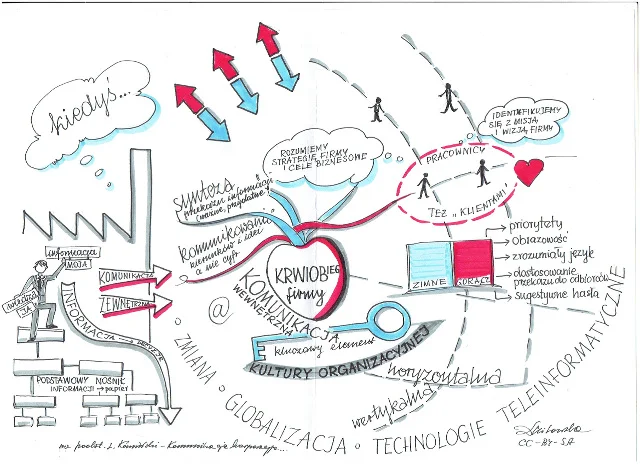 kiedyś...
ROZUMIEMY
STRATEGIĘ FIRMY
I CELE BIZNESOWE
IDENTYFIKUJEMY
SIĘ Z MISJĄ
I WIZJĄ FIRMY
PRACOWNICY
TEŻ „KLIENTAMI
synteza
przekazu informacji
komunikowanie
kierunków i idei
a nie cyfr
informacja
MOJA
KOMUNIKACJA
ZEWNĘTRZNA
INFORMACJA
PODSTAWOWY NOŚNIK
INFORMACJI → papier
KRWIOBIEG
firmy
@
KOMUNIKACJA
WEWNĘTRZNA
kluczowy element
KULTURY ORGANIZACYJNEJ
ZIMNE
GORĄCE
priorytety
obrazowość
zrozumiały język
dostosowanie
przekazu do odbiorców
sugestywne hasła
horyzontalna
wertykalna
ZMIANA GLOBALIZACJA TECHNOLOGIE TELEINFORMATYCZNE
na podst.
CC-BY-SA